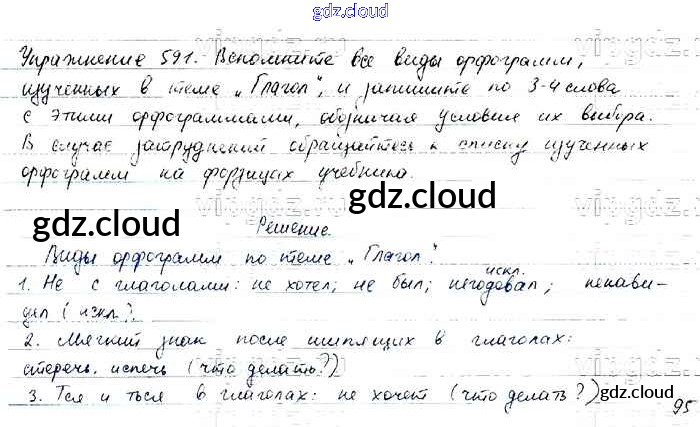 gdz.cloud
Упражнение 591. Вспомните все виды орфограмм,
изученных в теме „Глагол", и запишите по 3-4 слова
с этими орфограммами, обозначая условия их выбора.
В случае затруднений обращайтесь к списку изученных
орфограмм на форзацах учебника.
gdz.cloud gdz.cloud
Решение.
Виды орфограмм по теме „Глагол".
искл.
1. Не с глаголами: не хотел; не был; негодовал; ненави-
дел (искл.).
2. Мягкий знак после шипящих в глаголах:
стеречь, испечь (что делать?)
3. Тся и ться в глаголах: не хочет (что делать?)
gdz.cloud
95